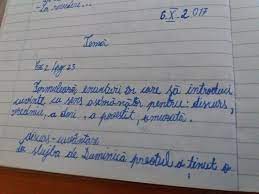 La revedere...
6.X.2017
Temă
Ex 2 / pg 23
Formulează enunțuri în care să introduci
cuvinte cu sens asemănător pentru: discurs,
vreme, a dori, a povesti,
discurs-cuvântare
La slujba de Duminică preotul a ținut o